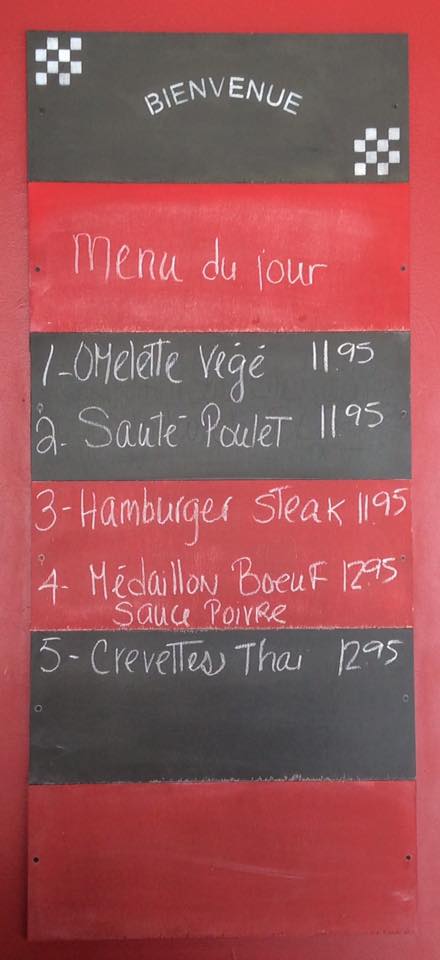 BIENVENUE
Menu du jour
1-Omelette Végé 11.95
2- Sauté Poulet 11.95
3-Hamburger Steak 11.95
4- Médaillon Boeuf 12.95
Sauce Poivre
5- Crevettes Thai 12.95